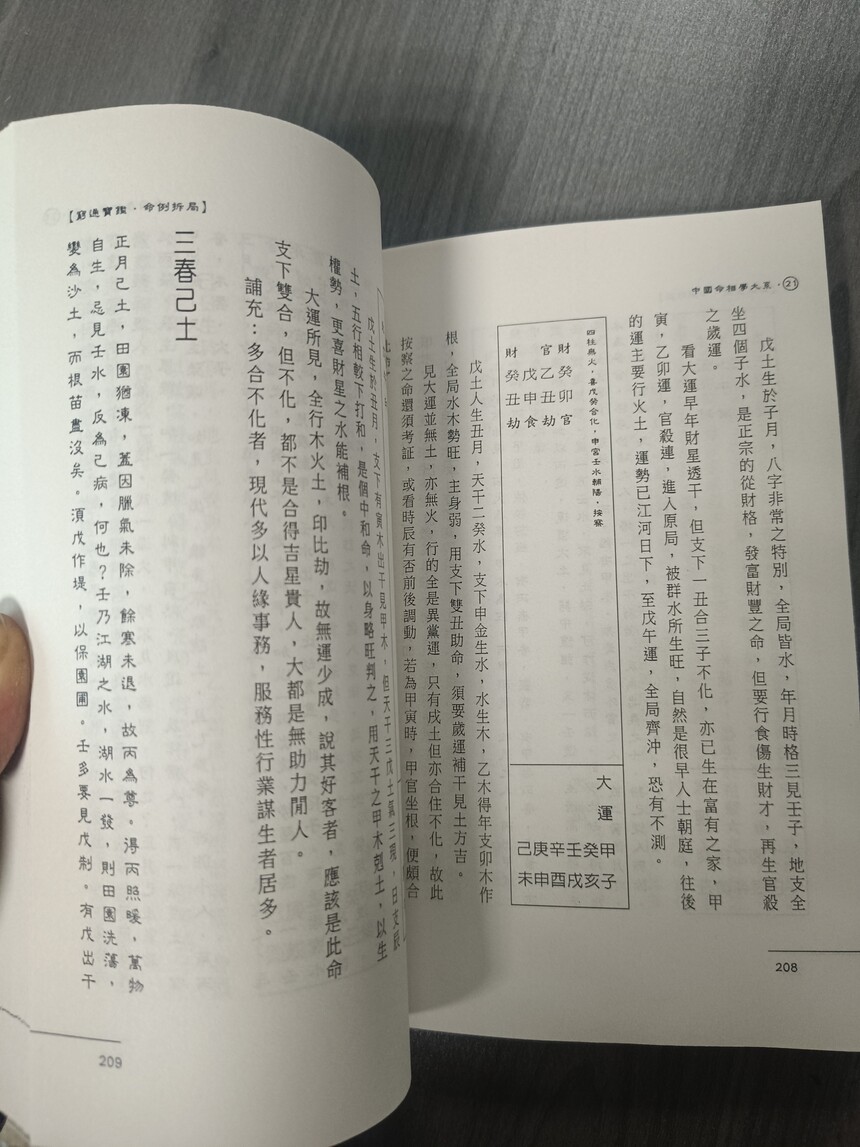 中國命相學大系‧㉑
戊土生於子月，八字非常之特別，全局皆水，年月時格三見壬子，地支全
坐四個子水，是正宗的從財格，發富財豐之命，但要行食傷生財才，再生官殺
之歲運。
看大運早年財星透干，但支下一丑合三子不化，亦已生在富有之家，甲
寅，乙卯運，官殺連，進入原局，被群水所生旺，自然是很早入士朝庭，往後
的運主要行火土，運勢已江河日下，至戊午運，全局齊沖，恐有不測。
四柱無火，喜戊癸合化，申宮壬水輔陽，按察
財癸卯官
官乙丑劫
戊申食
財癸丑劫
大運
甲子
癸亥
壬戌
辛酉
庚申
己未
戊土人生丑月，天干二癸水，支下申金生水，水生木，乙木得年支卯木作
根，全局水木勢旺，主身弱，用支下雙丑助命，須要歲運補干見土方吉。
見大運並無土，亦無火，行的全是異黨運，只有戌土但亦合住不化，故此
按察之命還須考証，或看時辰有否前後調動，若為甲寅時，甲官坐根，便頗合
208
【窮通寶鑑‧命例拆局】
戊土生於丑月，支下有寅木出干見甲木，但天干三戊土氣三現，日支辰
土，五行相較下打和，是個中和命，以身略旺判之，用天干之甲木剋土，以生
權勢，更喜財星之水能補根。
大運所見，全行木火土，印比劫，故無運少成，說其好客者，應該是此命
支下雙合，但不化，都不是合得吉星貴人，大都是無助力閒人。
誧充：多合不化者，現代多以人緣事務，服務性行業謀生者居多。
三春己土
正月己土，田園猶凍，蓋因臘氣未除，餘寒未退，故丙為尊。得丙照暖，萬物
自生，忌見壬水，反為己病，何也？壬乃江湖之水，湖水一發，則田園洗蕩，
變為沙土，而根苗盡沒矣。須戊作堤，以保園圃。壬多要見戊制。有戊出干
209